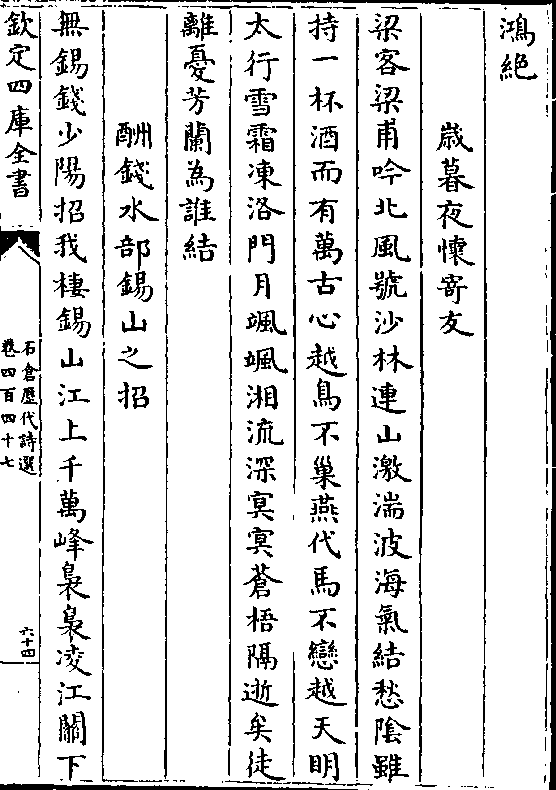 鴻絶
歳暮夜懷寄友
梁客梁甫吟北風號沙林連山激湍波海氣結愁陰雖
持一杯酒而有萬古心越鳥不巢燕代馬不戀越天明
太行雪霜凍洛門月颯颯湘流深㝠㝠蒼梧隔逝矣徒
離憂芳蘭為誰結
酬錢水部錫山之招
無錫錢少陽招我棲錫山江上千萬峰裊裊凌江關下
欽定四庫全書
石倉歷代詩選
卷四百四十七
六十四